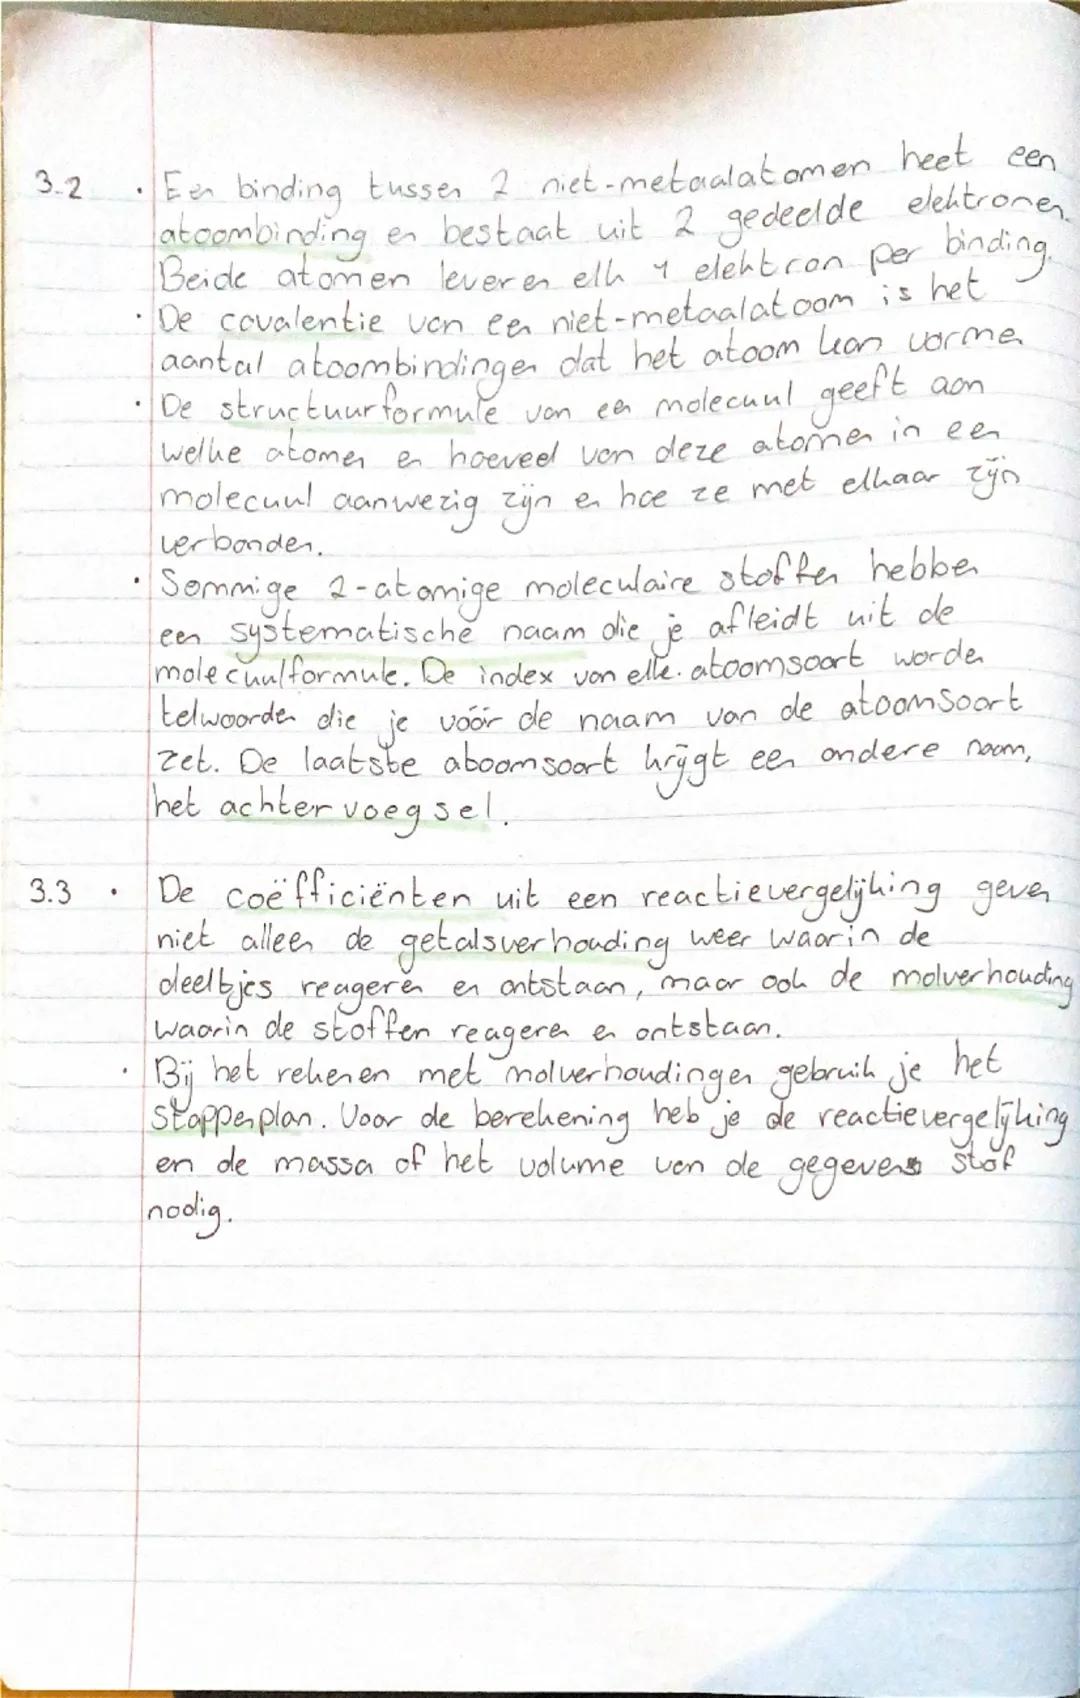 3.2 · Een binding tussen 2 niet-metaalatomen heet een
atoombinding en bestaat uit 2 gedeelde elektronen.
Beide atomen leveren elk 1 elektron per binding.
· De covalentie van een niet-metaalatoom is het
aantal atoombindingen dat het atoom kan vormen
· De structuurformule van een molecuul geeft aan
welke atomen en hoeveel van deze atomen in een
molecuul aanwezig zijn en hoe ze met elkaar zijn
verbonden.
· Sommige 2-atomige moleculaire stoffen hebben
een systematische naam die je afleidt uit de
molecuulformule. De index van elke atoomsoort worden
telwoorden die je vóór de naam van de atoomsoort
zet. De laatste atoomsoort krijgt een andere naam,
het achtervoegsel.
3.3 · De coëfficiënten uit een reactievergelijking geven
niet alleen de getalsverhouding weer waarin de
deeltjes reageren en ontstaan, maar ook de molverhouding
waarin de stoffen reageren en ontstaan.
· Bij het rekenen met molverhoudingen gebruik je het
stappenplan. Voor de berekening heb je de reactievergelijking
en de massa of het volume van de gegevens stof
nodig.